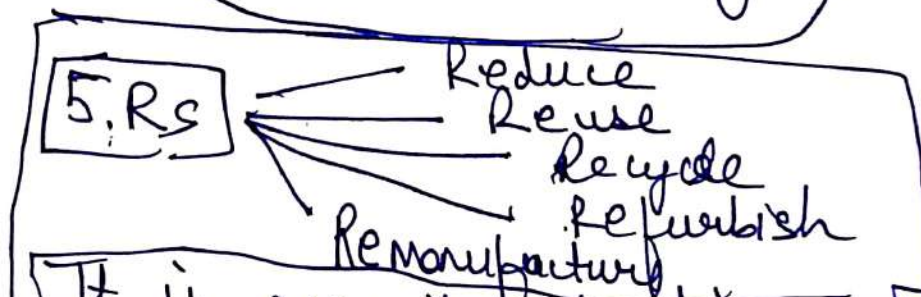 5.Rs
Reduce
Reuse
Recycle
Refurbish
Remanufacturing
It is